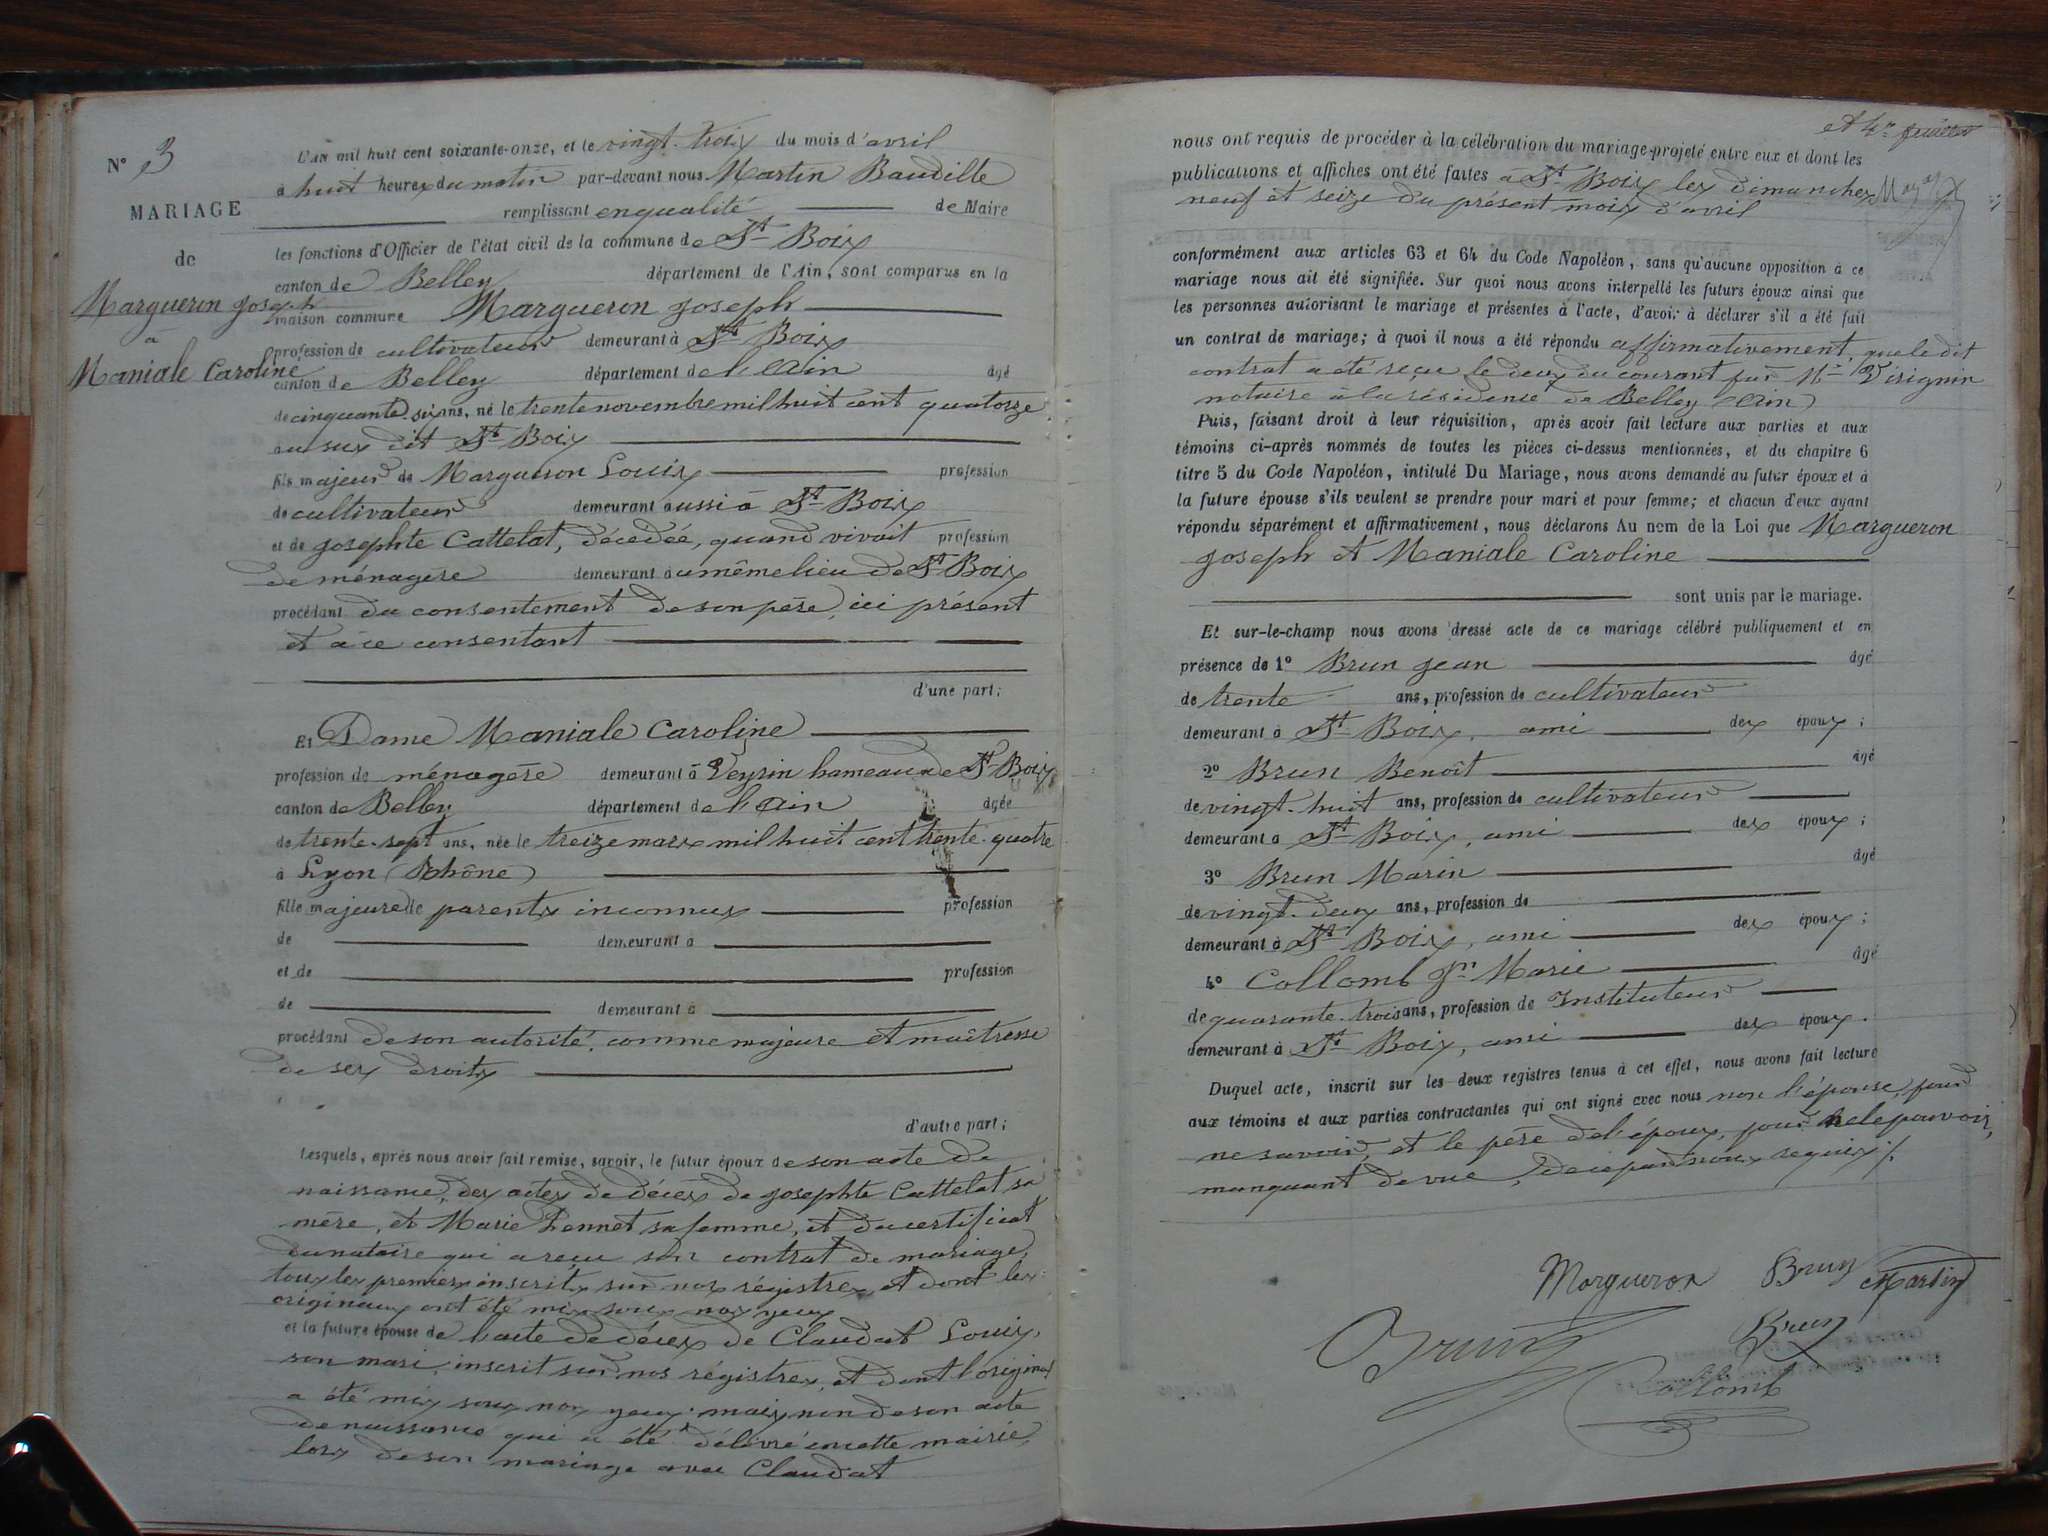 N° 3
MARIAGE
de
Margueron Joseph
a
Maniale Caroline
L'an mil huit cent soixante-onze, et le vingt-trois du mois d'avril
à huit heures du matin par-devant nous Martin Baudille
remplissant en qualité de Maire
les fonctions d'Officier de l'état civil de la commune de St Bois
canton de Belley département de l'Ain, sont comparus en la
maison commune Margueron Joseph
profession de cultivateur demeurant à St Bois
canton de Belley département de l'Ain âgé
de cinquante six ans, né le trente novembre mil huit cent quatorze
au sus dit St Bois
fils majeur de Margueron Louis profession
de cultivateur demeurant aussi à St Bois
et de Josephte Cattelat, décédée, quand vivait profession
de ménagère demeurant au même lieu de St Bois
procédant du consentement de son père, ici présent
et à ce consentant
d'une part;
Et Dame Maniale Caroline
profession de ménagère demeurant à Veyrin hameau de St Bois
canton de Belley département de l'Ain âgée
de trente-sept ans, née le treize mars mil huit cent trente-quatre
à Lyon (Rhône)
fille majeure de parents inconnus profession
de demeurant à
et de profession
de demeurant à
procédant de son autorité, comme majeure et maîtresse
de ses droits
d'autre part;
Lesquels, après nous avoir fait remise, savoir, le futur époux de son acte de
naissance, des actes de décès de Josephte Cattelat sa
mère, et Marie Pennet sa femme, et du certificat
du notaire qui a reçu son contrat de mariage,
tous les premiers inscrits sur nos régistres, et dont les
originaux ont été mis sous nos yeux
et la future épouse de l'acte de décès de Claudat Louis,
son mari, inscrit sur nos régistres, et dont l'original
a été mis sous nos yeux, mais non de son acte
de naissance qui a été délivré en cette mairie,
lors de son mariage avec Claudat
nous ont requis de procéder à la célébration du mariage projeté entre eux et dont les
publications et affiches ont été faites à St Bois les dimanches
neuf et seize du présent mois d'avril
conformément aux articles 63 et 64 du Code Napoléon, sans qu'aucune opposition à ce
mariage nous ait été signifiée. Sur quoi nous avons interpellé les futurs époux ainsi que
les personnes autorisant le mariage et présentes à l'acte, d'avoir à déclarer s'il a été fait
un contrat de mariage; à quoi il nous a été répondu affirmativement, que le dit
contrat a été reçu le deux du courant par Me Virignin
notaire à la résidence de Belley (Ain)
Puis, faisant droit à leur réquisition, après avoir fait lecture aux parties et aux
témoins ci-après nommés de toutes les pièces ci-dessus mentionnées, et du chapitre 6
titre 5 du Code Napoléon, intitulé Du Mariage, nous avons demandé au futur époux et à
la future épouse s'ils veulent se prendre pour mari et pour femme; et chacun d'eux ayant
répondu séparément et affirmativement, nous déclarons Au nom de la Loi que Margueron
Joseph et Maniale Caroline
sont unis par le mariage.
Et sur-le-champ nous avons dressé acte de ce mariage célébré publiquement et en
présence de 1° Brun Jean âgé
de trente ans, profession de cultivateur
demeurant à St Bois, ami des époux;
2° Brun Benoît âgé
de vingt-huit ans, profession de cultivateur
demeurant à St Bois, ami des époux;
3° Brun Marin âgé
de vingt-deux ans, profession de
demeurant à St Bois, ami des époux;
4° Collomb Jn Marie âgé
de quarante-trois ans, profession de Instituteur
demeurant à St Bois, ami des époux.
Duquel acte, inscrit sur les deux registres tenus à cet effet, nous avons fait lecture
aux témoins et aux parties contractantes qui ont signé avec nous non l'épouse, pour
ne savoir, et le père de l'époux, pour ne le pouvoir,
manquant de vue, de ce par nous requis
Margueron Brun Martin
Brun Brun
Collomb